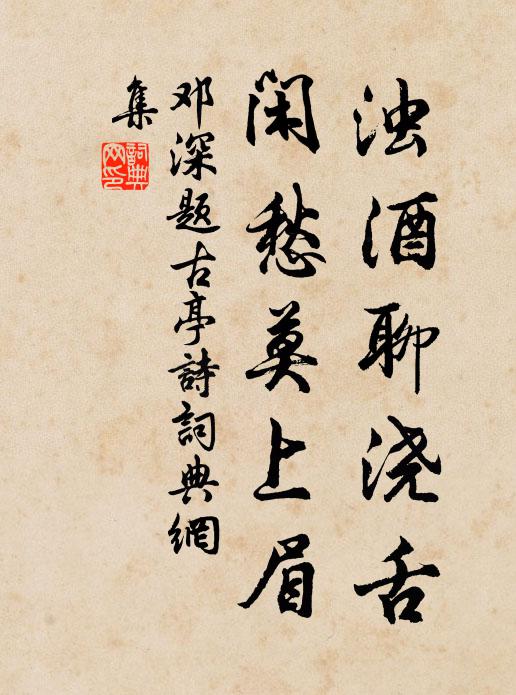 浊酒聊浇舌
闲愁莫上眉
邓深题古亭詩詞典網
集
詞典網印